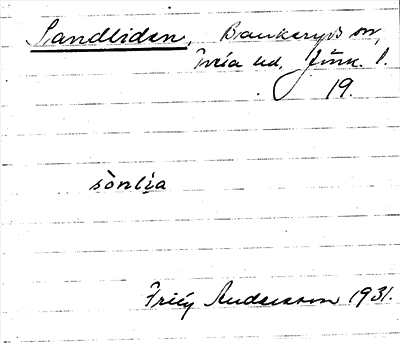 Sandliden, Bankeryds sn,
Tveta hd, Jönk. l.
19.
sònlia
Frig Andersson 1931.